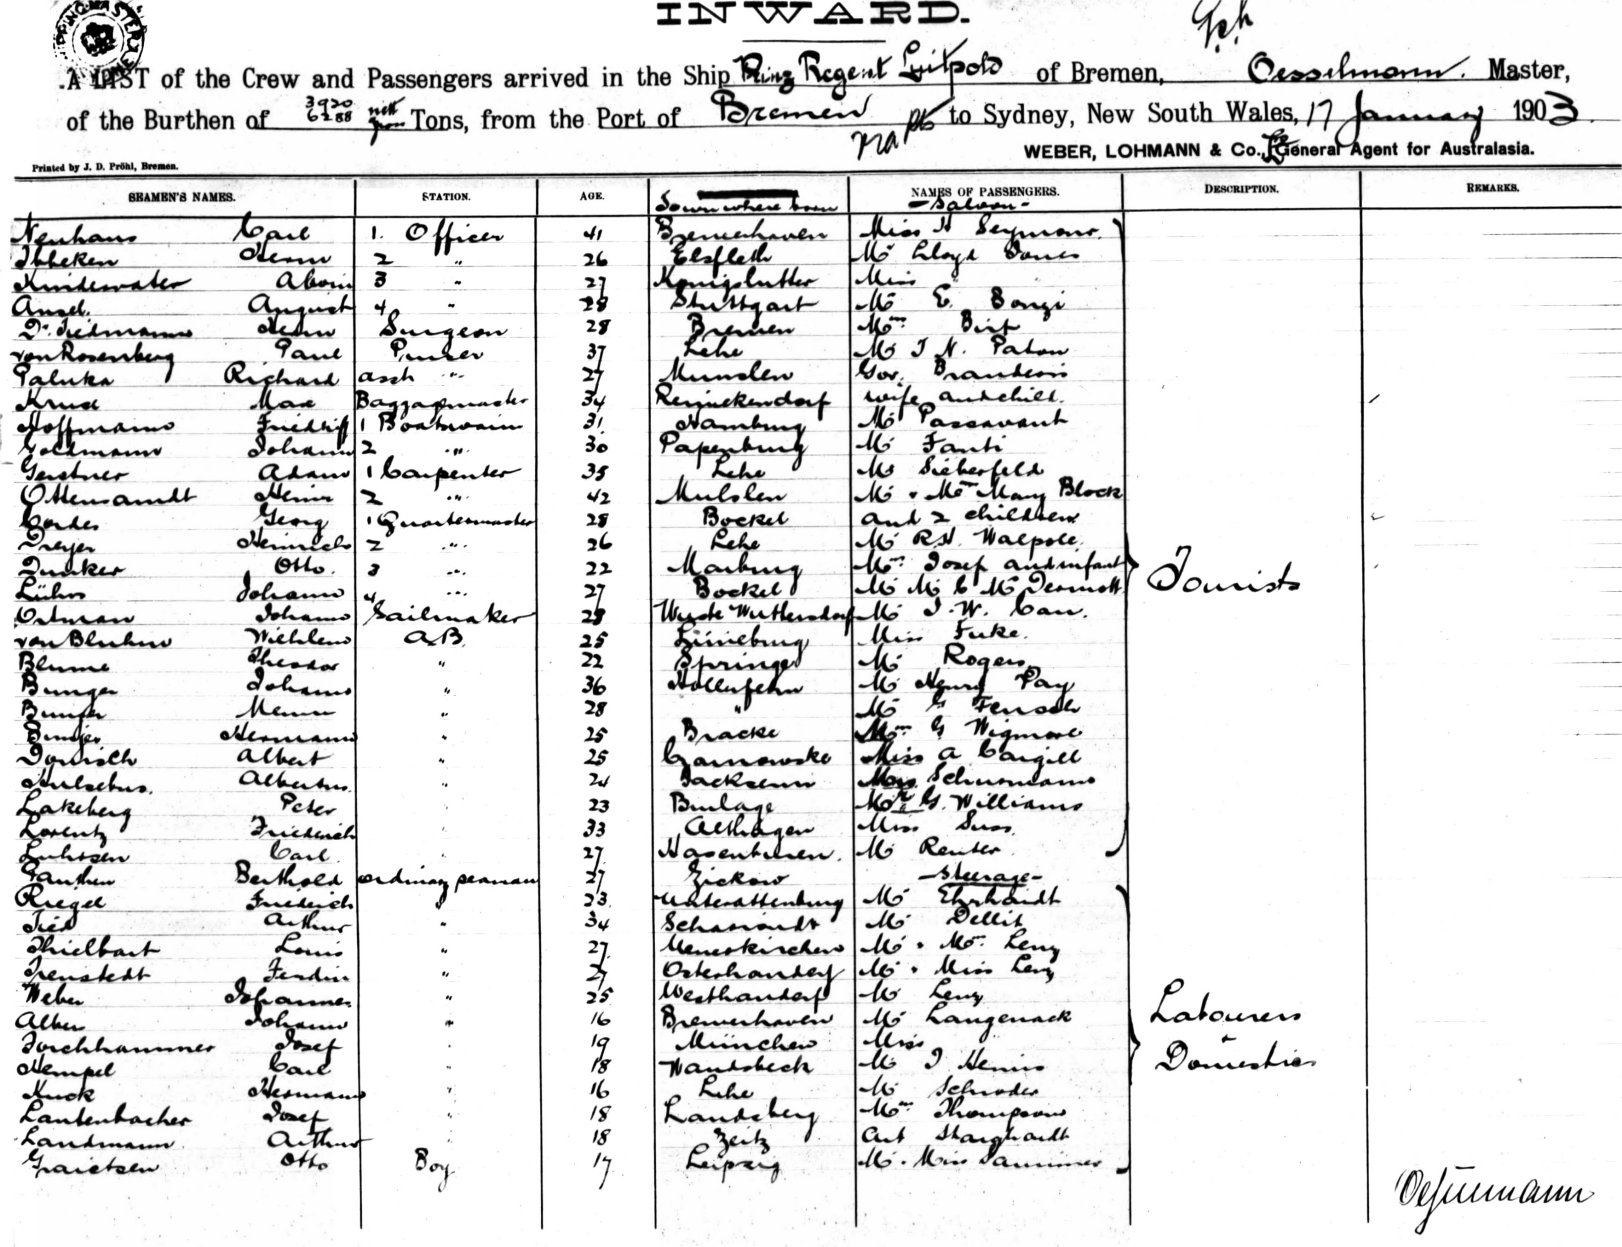 INWARD.
A LIST of the Crew and Passengers arrived in the Ship Prinz Regent Luitpold of Bremen, Oesselmann. Master,
of the Burthen of 3920 6288 nett Tons, from the Port of Bremen to Sydney, New South Wales, 17 January 1903.
WEBER, LOHMANN & Co., General Agent for Australasia.
Printed by J. D. Pröhl, Bremen.
SEAMEN'S NAMES. STATION. AGE. Town where born NAMES OF PASSENGERS. DESCRIPTION. REMARKS.
-Saloon-
Neuhaus Carl 1. Officer 41 Bremerhaven Miss H Seymour.
Ibbeken Herm 2 " 26 Elsfleth Mr Lloyd Jones
Kindewater Alwin 3 " 27 Konigslutter Miss "
Ansel. August 4 " 28 Stuttgart Mr E.
Dr. Tiedmann Herm Surgeon 28 Bremen Mrs Birt
von Rosenberg Paul Purser 37 Lehe Mr J N. Paton
Paluka Richard asst " 27 Munslen Gov. Brandeis
Kruse Max Baggagemaster 34 Reinickendorf wife and child.
Hoffmann Friedrich 1 Boatswain 31 Hamburg Mr Passavant
Goldmann Johann 2 " 30 Papenburg Mr Fanti
Gerstner Adam 1 Carpenter 35 Lehe Mr Sieberfeld
Heinr 2 " 42 Mulslen Mr & Mrs Mary Block
Cordes Georg 1 Quartermaster 28 Bockel and 2 children
Dreyer Heinrich 2 " 26 Lehe Mr R.H. Walpole.
Dunker Otto. 3 " 22 Marburg Mrs Josef and infant
Lührs Johann 4 " 27 Bockel Mr M C Mc Dermott
Tourists
Ortman Johann Sailmaker 28 Mr J. W. Carr.
von Bluhm Wilhelm A.B. 25 Lüneburg Miss Fuke.
Blume Theodor " 22 Springe Mr Rogers
Bunger Johann " 36 Hollenfehn Mr Henry Pay
Bunger Menno " 28 " Mr G
Hermann " 25 Bracke Mrs G Wigmore
Albert " 25 Miss A Cargill
Hulsebus. Albertus. " 24 Schurmann
Lakeberg Peter 23 Burlage Mr G. Williams
Lorentz Friederich 33 Althagen Miss Suss.
Luhrsen Carl. 27 Mr Reuter
Berthold ordinary seaman 27 Zickow -Steerage-
Riegel Friederich " 23. Mr Ehrhardt
Tied Arthur " 34 Mr Dellit
Thielbart Louis " 27 Mr & Mrs Leny
Ferdin " 27 Osterhanderf Mr & Miss Leny
Weber Johannes " 25 Westhanderf Mr Leny
Alber Johann " 16 Bremerhaven Mr Langenack
Labourers
Forchhammer Josef 19 München Miss "
Domestics
Hempel Carl 18 Wandsbeck Mr J Henris
Kuck Hermann 16 Lehe Mr Schroder
Lautenbacher Josef 18 Landsberg Mrs Thompson
Landmann Arthur 18 Zeitz
Otto Boy 17 Leipzig Mr. Miss
Oesselmann